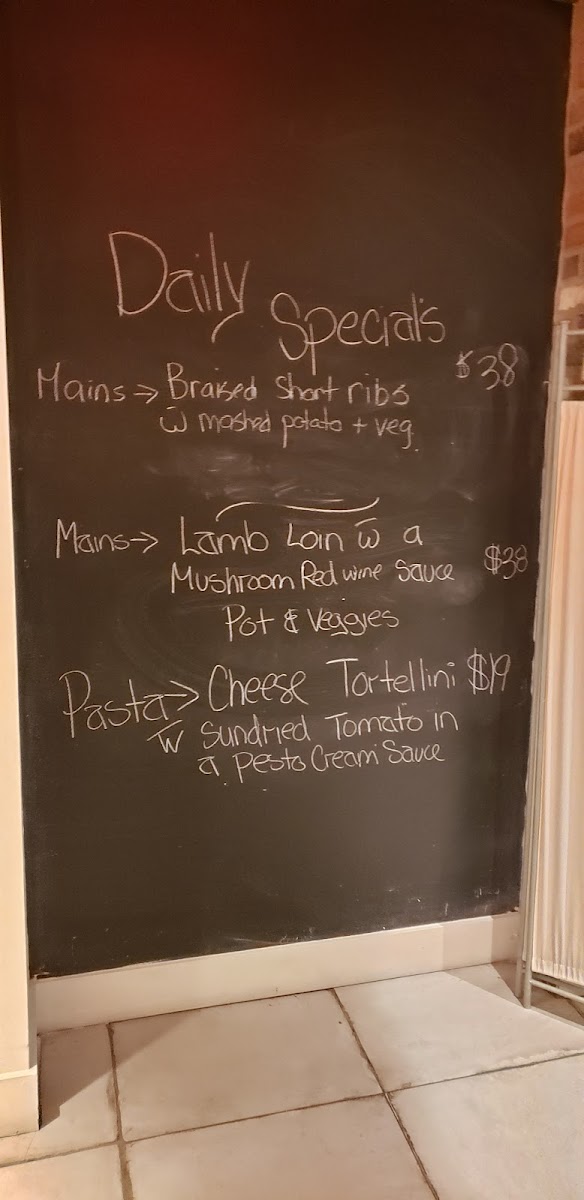 Daily Specials
Mains → Braised Short ribs $38
w̅ mashed potato + veg.
Mains → Lamb Loin w̅ a
Mushroom Red wine sauce $38
Pot & Veggies
Pasta → Cheese Tortellini $19
w̅ Sundried Tomato in
a Pesto Cream Sauce